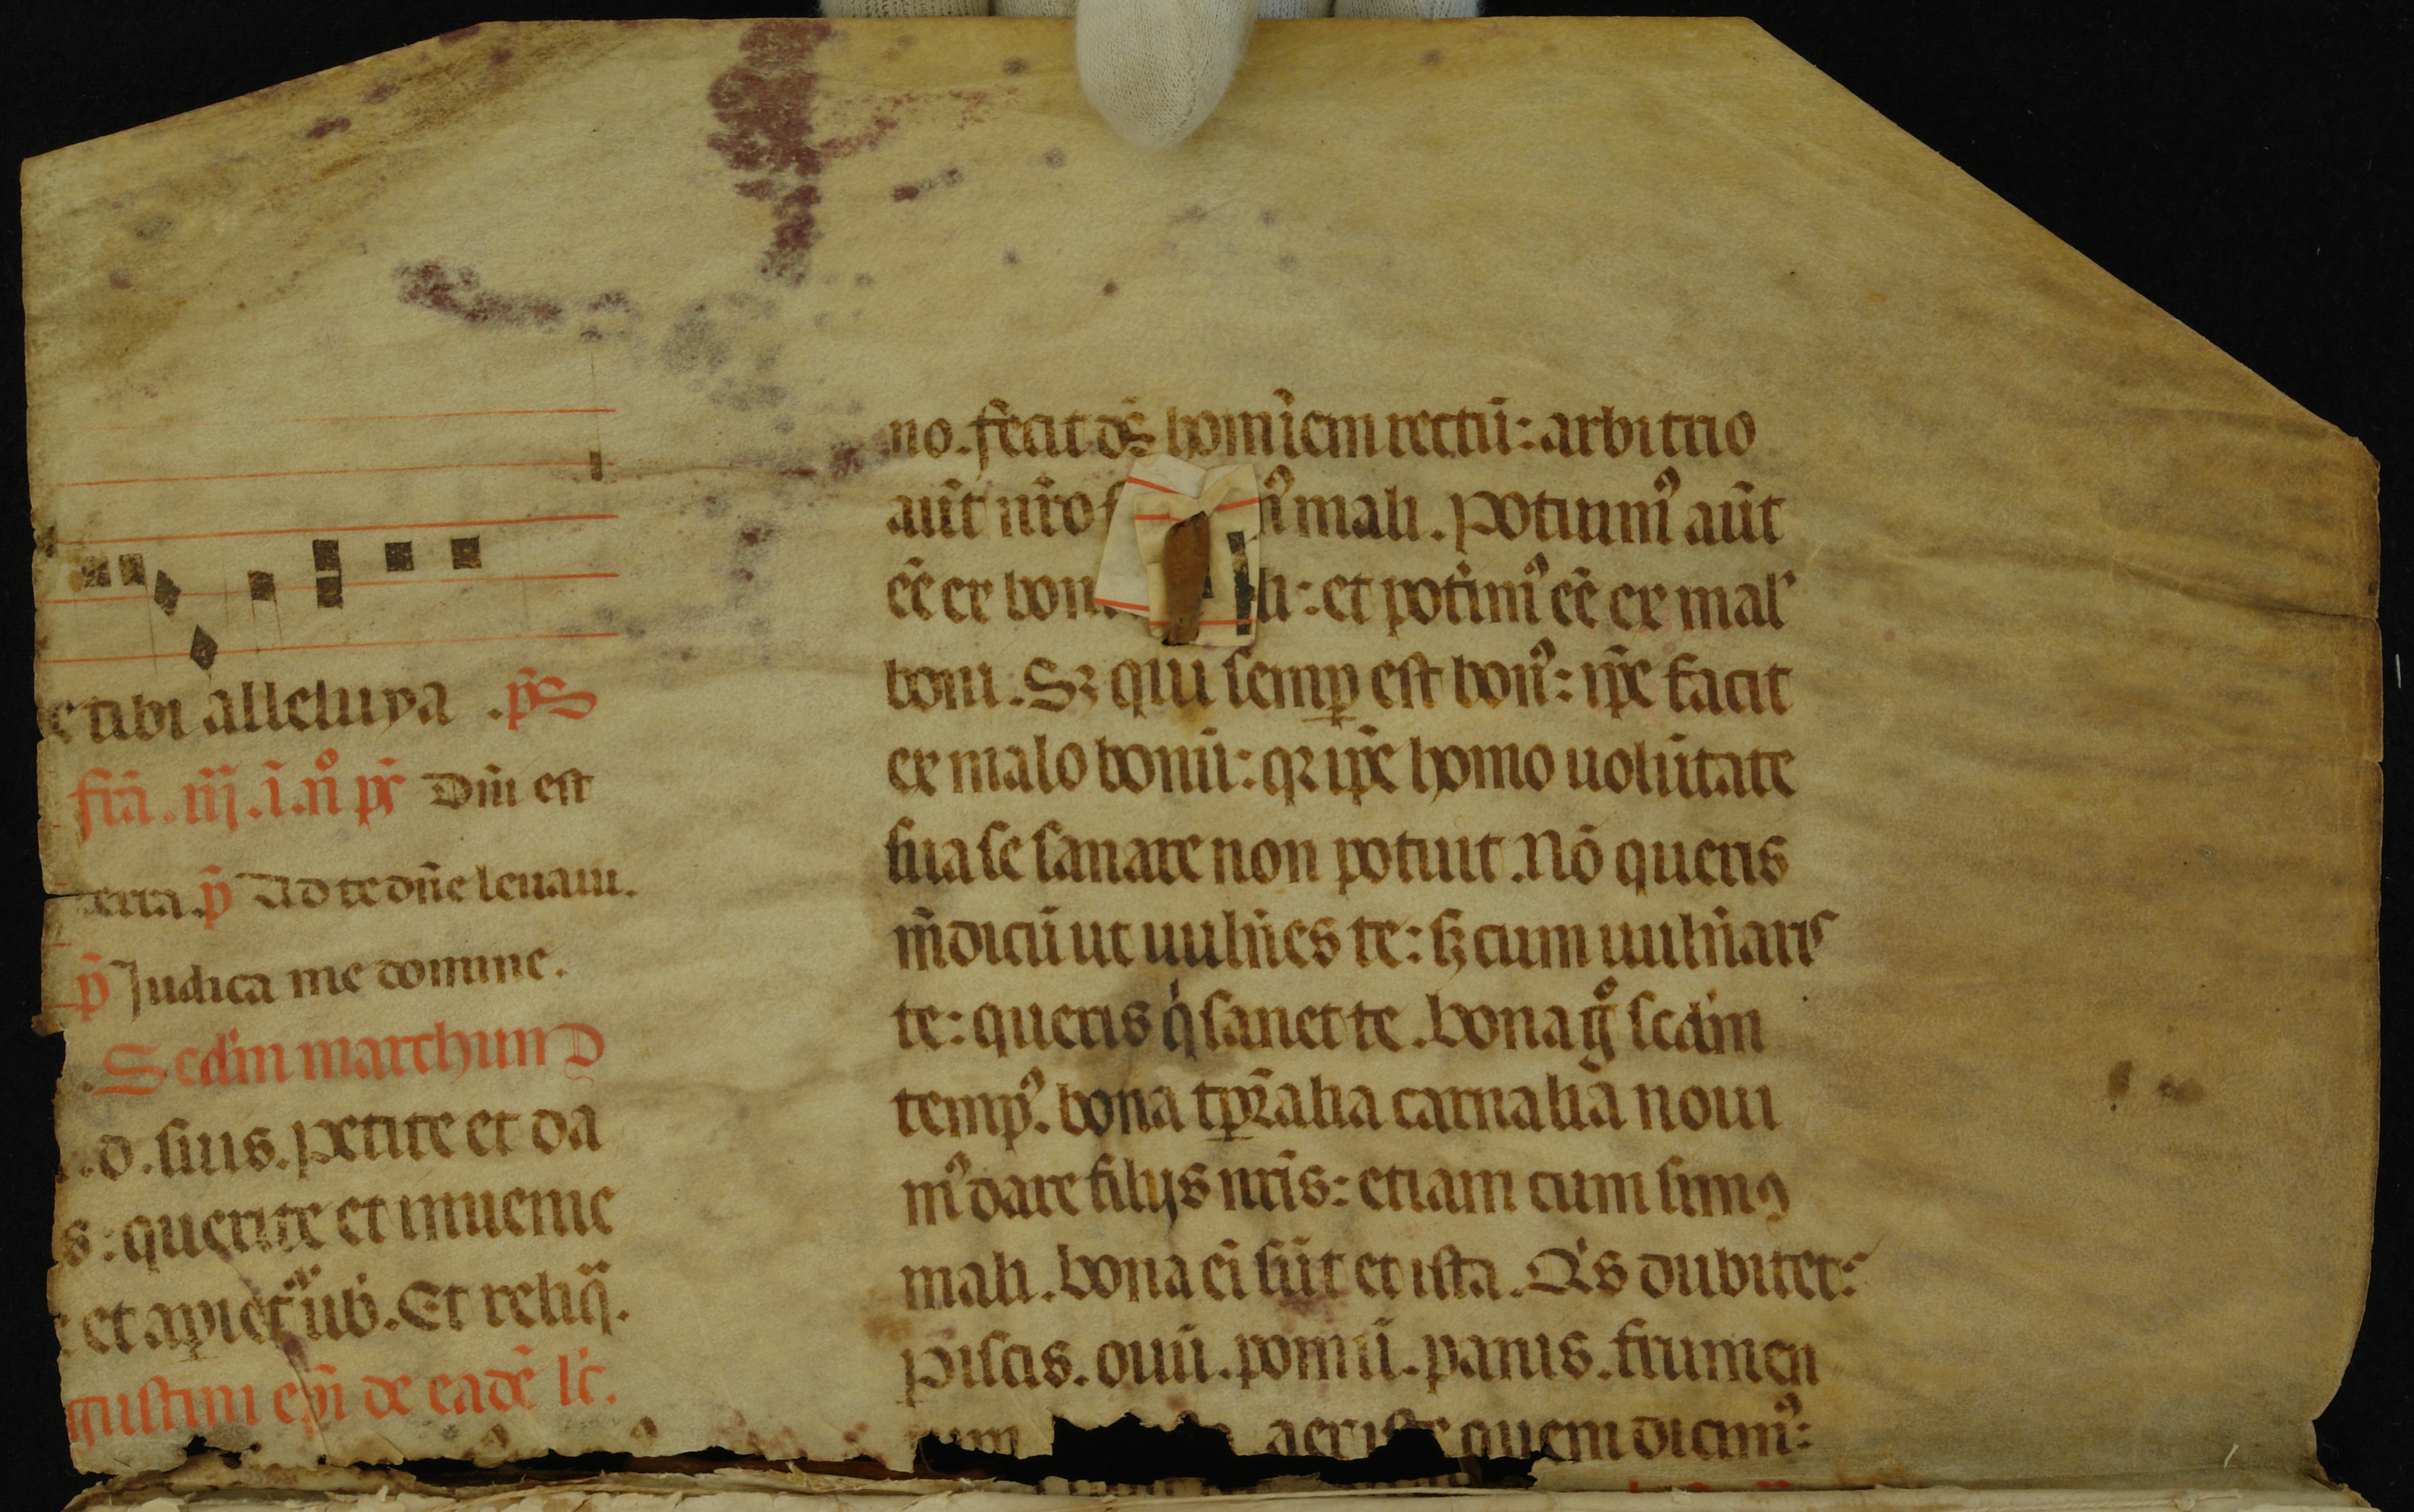 e tibi alleluya .p̄s
fr̄a .iij .i. n̊ ps̄ Dn̄i est
terra. p̄ Ad te dn̄e leuaui.
p̄ Judica me domine.
Scdm marchum
d. suis. Petite et da
s: querite et inuenie
et apiet᷑ uob̄. Et reliq̄.
gustini ep̄i de eadē lc̄.
no. fecit ds̄ homīem rectū: arbitrio
aūt nr̄o mali. Potuim᷒ aūt
ēē ex boni li: et potim᷒ ēē ex mal᷒
boni. Sꝫ qui semꝑ est bon᷒: ip̄e facit
ex malo bonū: qꝛ ip̄e homo uolūtate
sua se sanare non potuit. Nō queris
m̄dicū ut uuln̄es te: sꝫ cum uuln̄aris
te: queris q̇ sanet te. bona g̊ scdm
temp᷒. bona tꝑalia carnalia noui
m᷒ dare filijs nr̄is: etiam cum simꝯ
mali. bona ei sūt et ista. Q̇s dubitet:
Piscis. ouū. pomū. panis. frumen
tum aer iste quem dicim᷒: